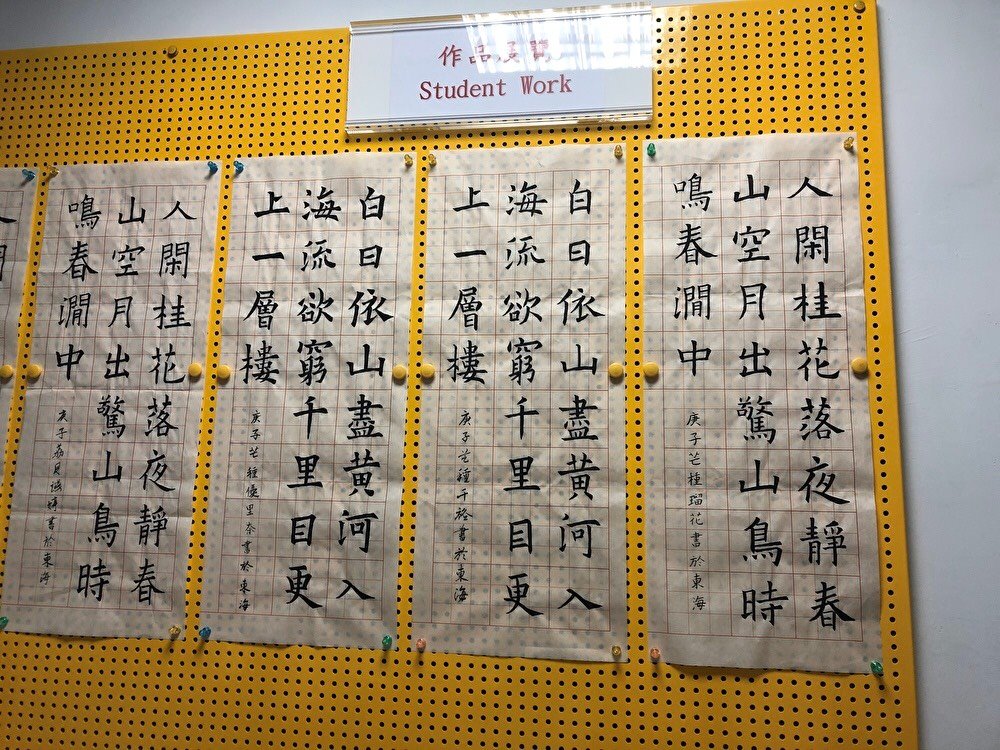 作品展覽
Student Work
人閑桂花落夜靜春
山空月出驚山鳥時
鳴春澗中
庚子芒種瑠花書於東海
白日依山盡黃河入
海流欲窮千里目更
上一層樓
庚子芒種千裕書於東海
白日依山盡黃河入
海流欲窮千里目更
上一層樓
庚子芒種優里奈書於東海
人閑桂花落夜靜春
山空月出驚山鳥時
鳴春澗中
庚子書於東海